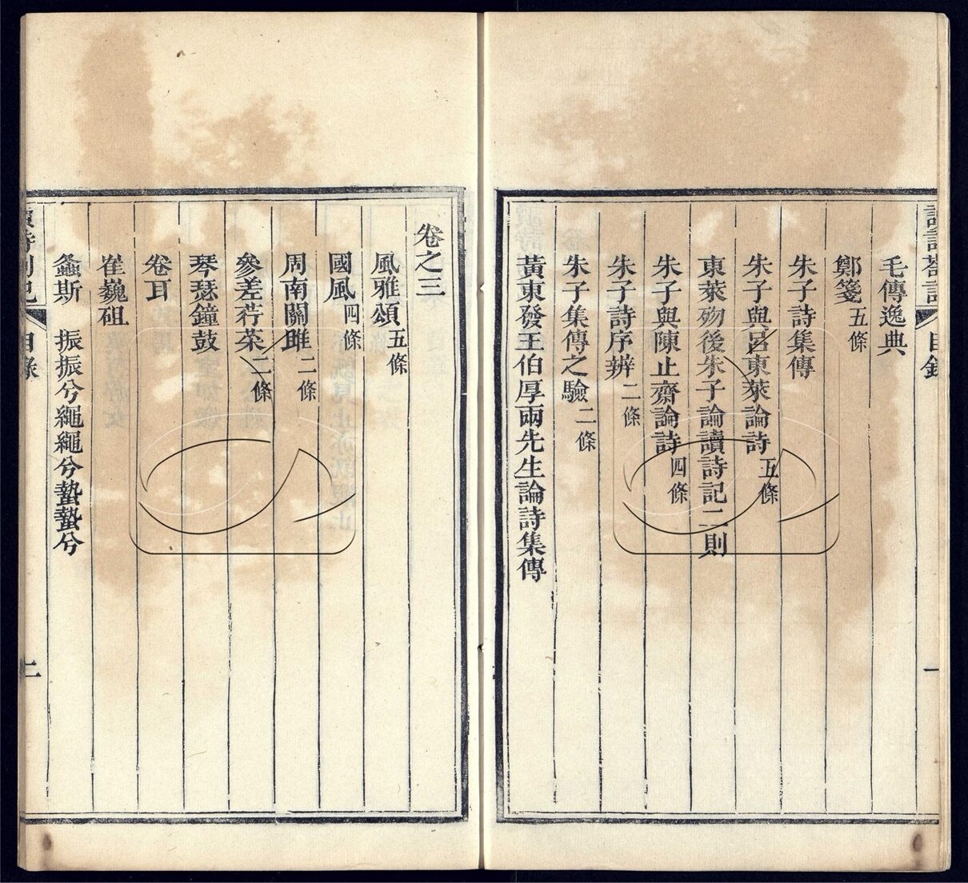 毛傳逸典
鄭箋五條
朱子詩集傳
朱子與呂東萊論詩五條
東萊歿後朱子論讀詩記二則
朱子與陳止齋論詩四條
朱子詩序辨二條
朱子集傳之驗二條
黃東發王伯厚兩先生論詩集傳
卷之三
風雅頌五條
國風四條
周南關雎二條
參差荇菜二條
琴瑟鐘鼓
卷耳
崔巍砠
螽斯 振振兮繩繩兮蟄蟄兮
目錄